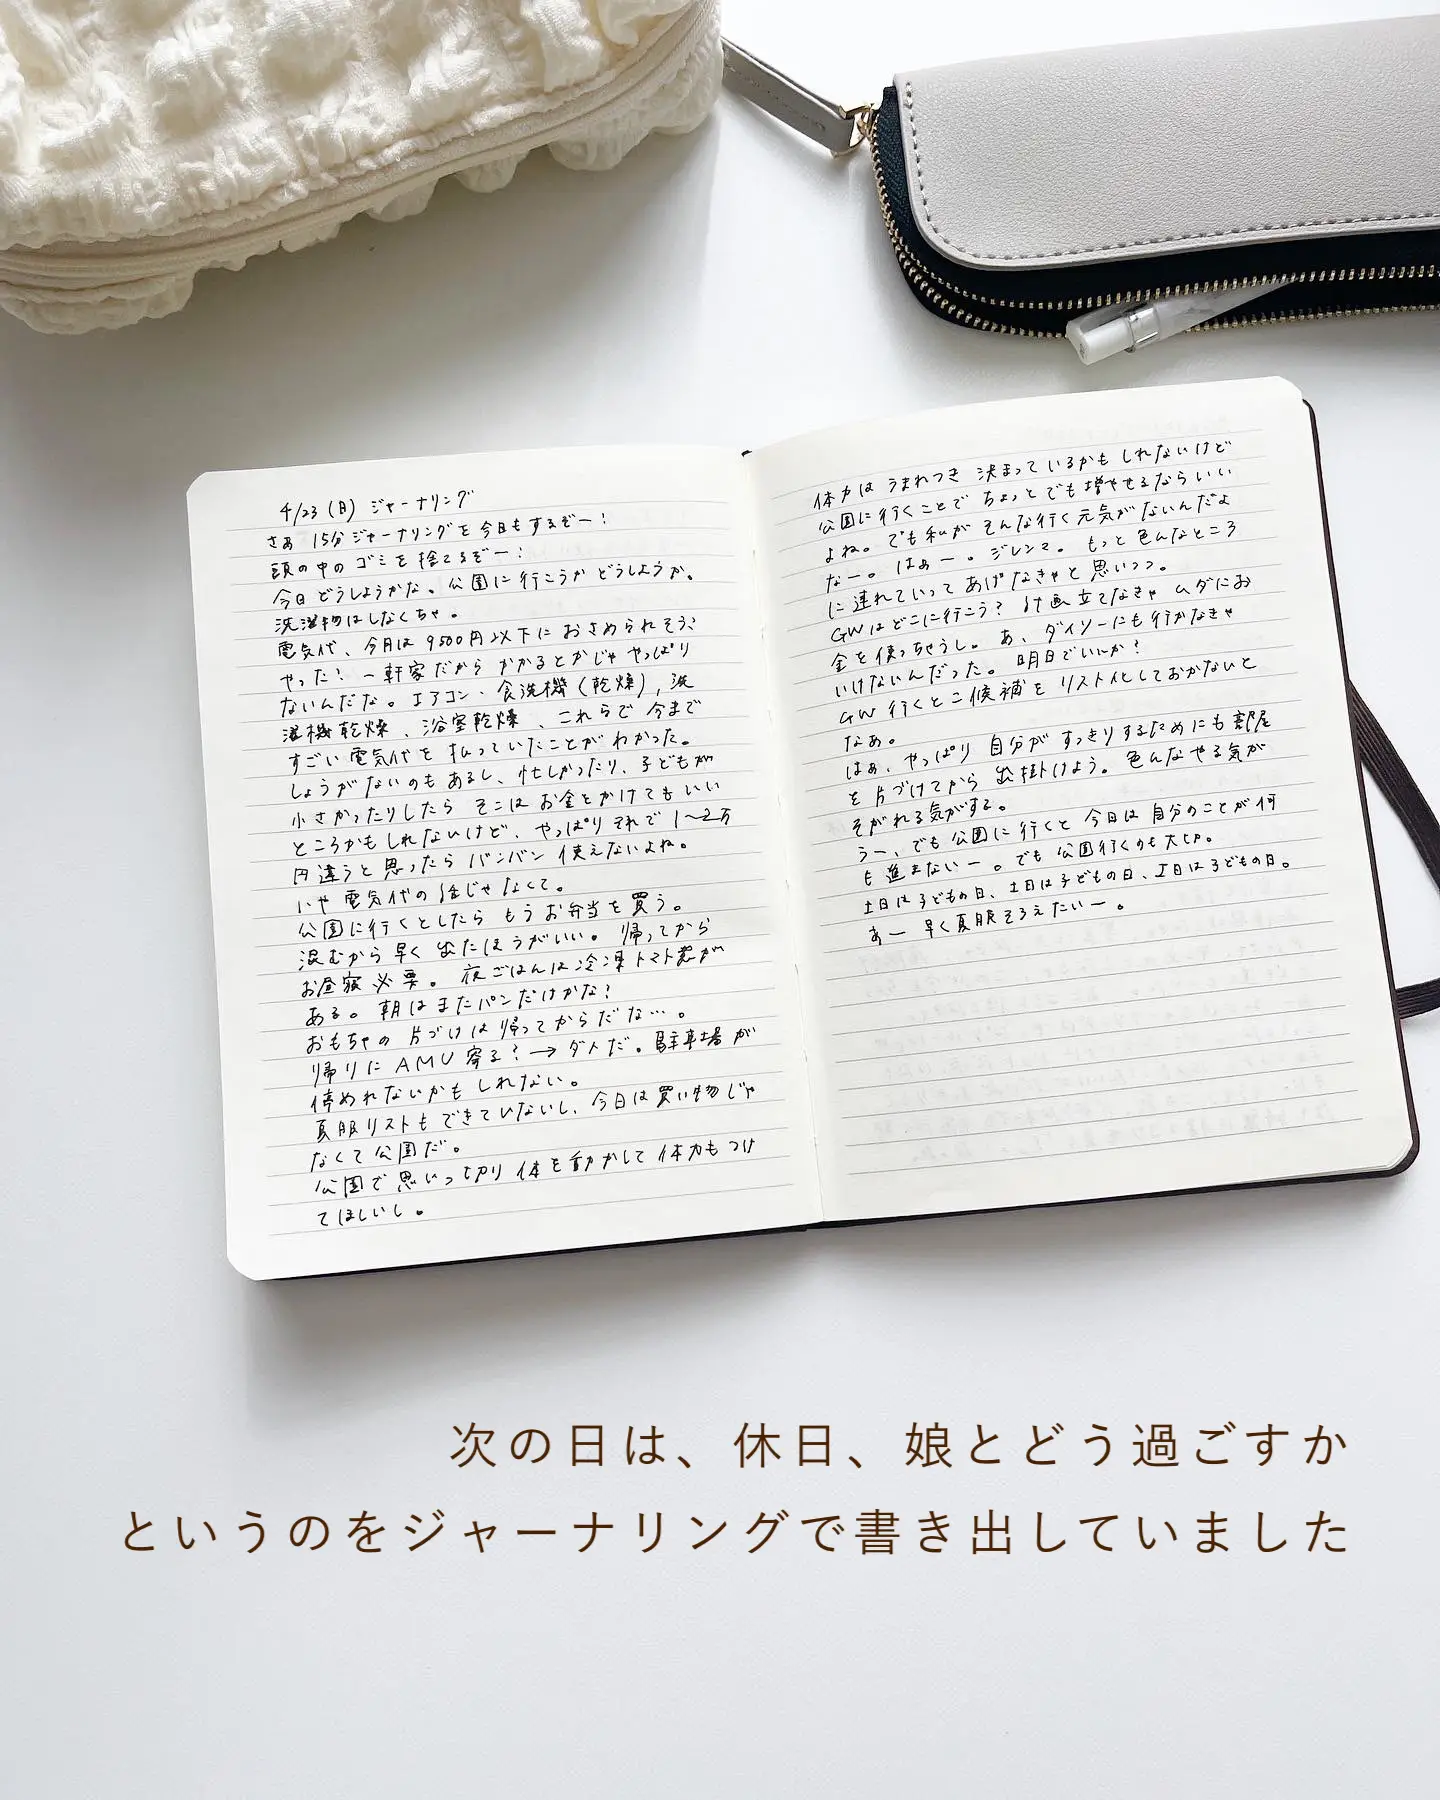 4/23(日) ジャーナリング
さあ 15分ジャーナリングを今日もするぞー！
頭の中のゴミを捨てるぞー！
今日どうしようかな。公園に行こうかどうしようか。
洗濯物はしなくちゃ。
電気代、今月は9500円以下におさめられそう、
やった！一軒家だからかかるとかじゃやっぱり
ないんだな。エアコン、食洗機(乾燥)、洗
濯機乾燥、浴室乾燥、これらで今まで
すごい電気代を払っていたことがわかった。
しょうがないのもあるし、忙しかったり、子どもが
小さかったりしたらそこはお金をかけてもいい
ところかもしれないけど、やっぱりそれで1〜2万
円違うと思ったらバンバン使えないよね。
いや電気代の話じゃなくて。
公園に行くとしたらもうお弁当を買う。
混むから早く出たほうがいい。帰ってから
お昼寝必要。夜ごはんは冷凍トマト煮が
ある。朝はまたパンだけかな？
おもちゃの片づけは帰ってからだな…。
帰りにAMU寄る？→ダメだ。駐車場が
停めれないかもしれない。
夏服リストもできていないし、今日は買い物じゃ
なくて公園だ。
公園で思いっ切り体を動かして体力もつけ
てほしいし。
体力はうまれつき決まっているかもしれないけど
公園に行くことでちょっとでも増やせるならいい
よね。でも私がそんな行く元気がないんだよ
なー。はぁー。ジレンマ。もっと色んなところ
に連れていってあげなきゃと思いつつ。
GWはどこに行こう？計画立てなきゃムダにお
金を使っちゃうし。あ、ダイソーにも行かなきゃ
いけないんだった。明日でいいか？
GW行くとこ候補をリスト化しておかないと
なあ。
はぁ、やっぱり自分がすっきりするためにも部屋
を片づけてから出掛けよう。色んなやる気が
そがれる気がする。
うー、でも公園に行くと今日は自分のことが何
も進まないー。でも公園行くのも大切。
土日は子どもの日、土日は子どもの日、土日は子どもの日。
あー早く夏服そろえたいー。
次の日は、休日、娘とどう過ごすか
というのをジャーナリングで書き出していました